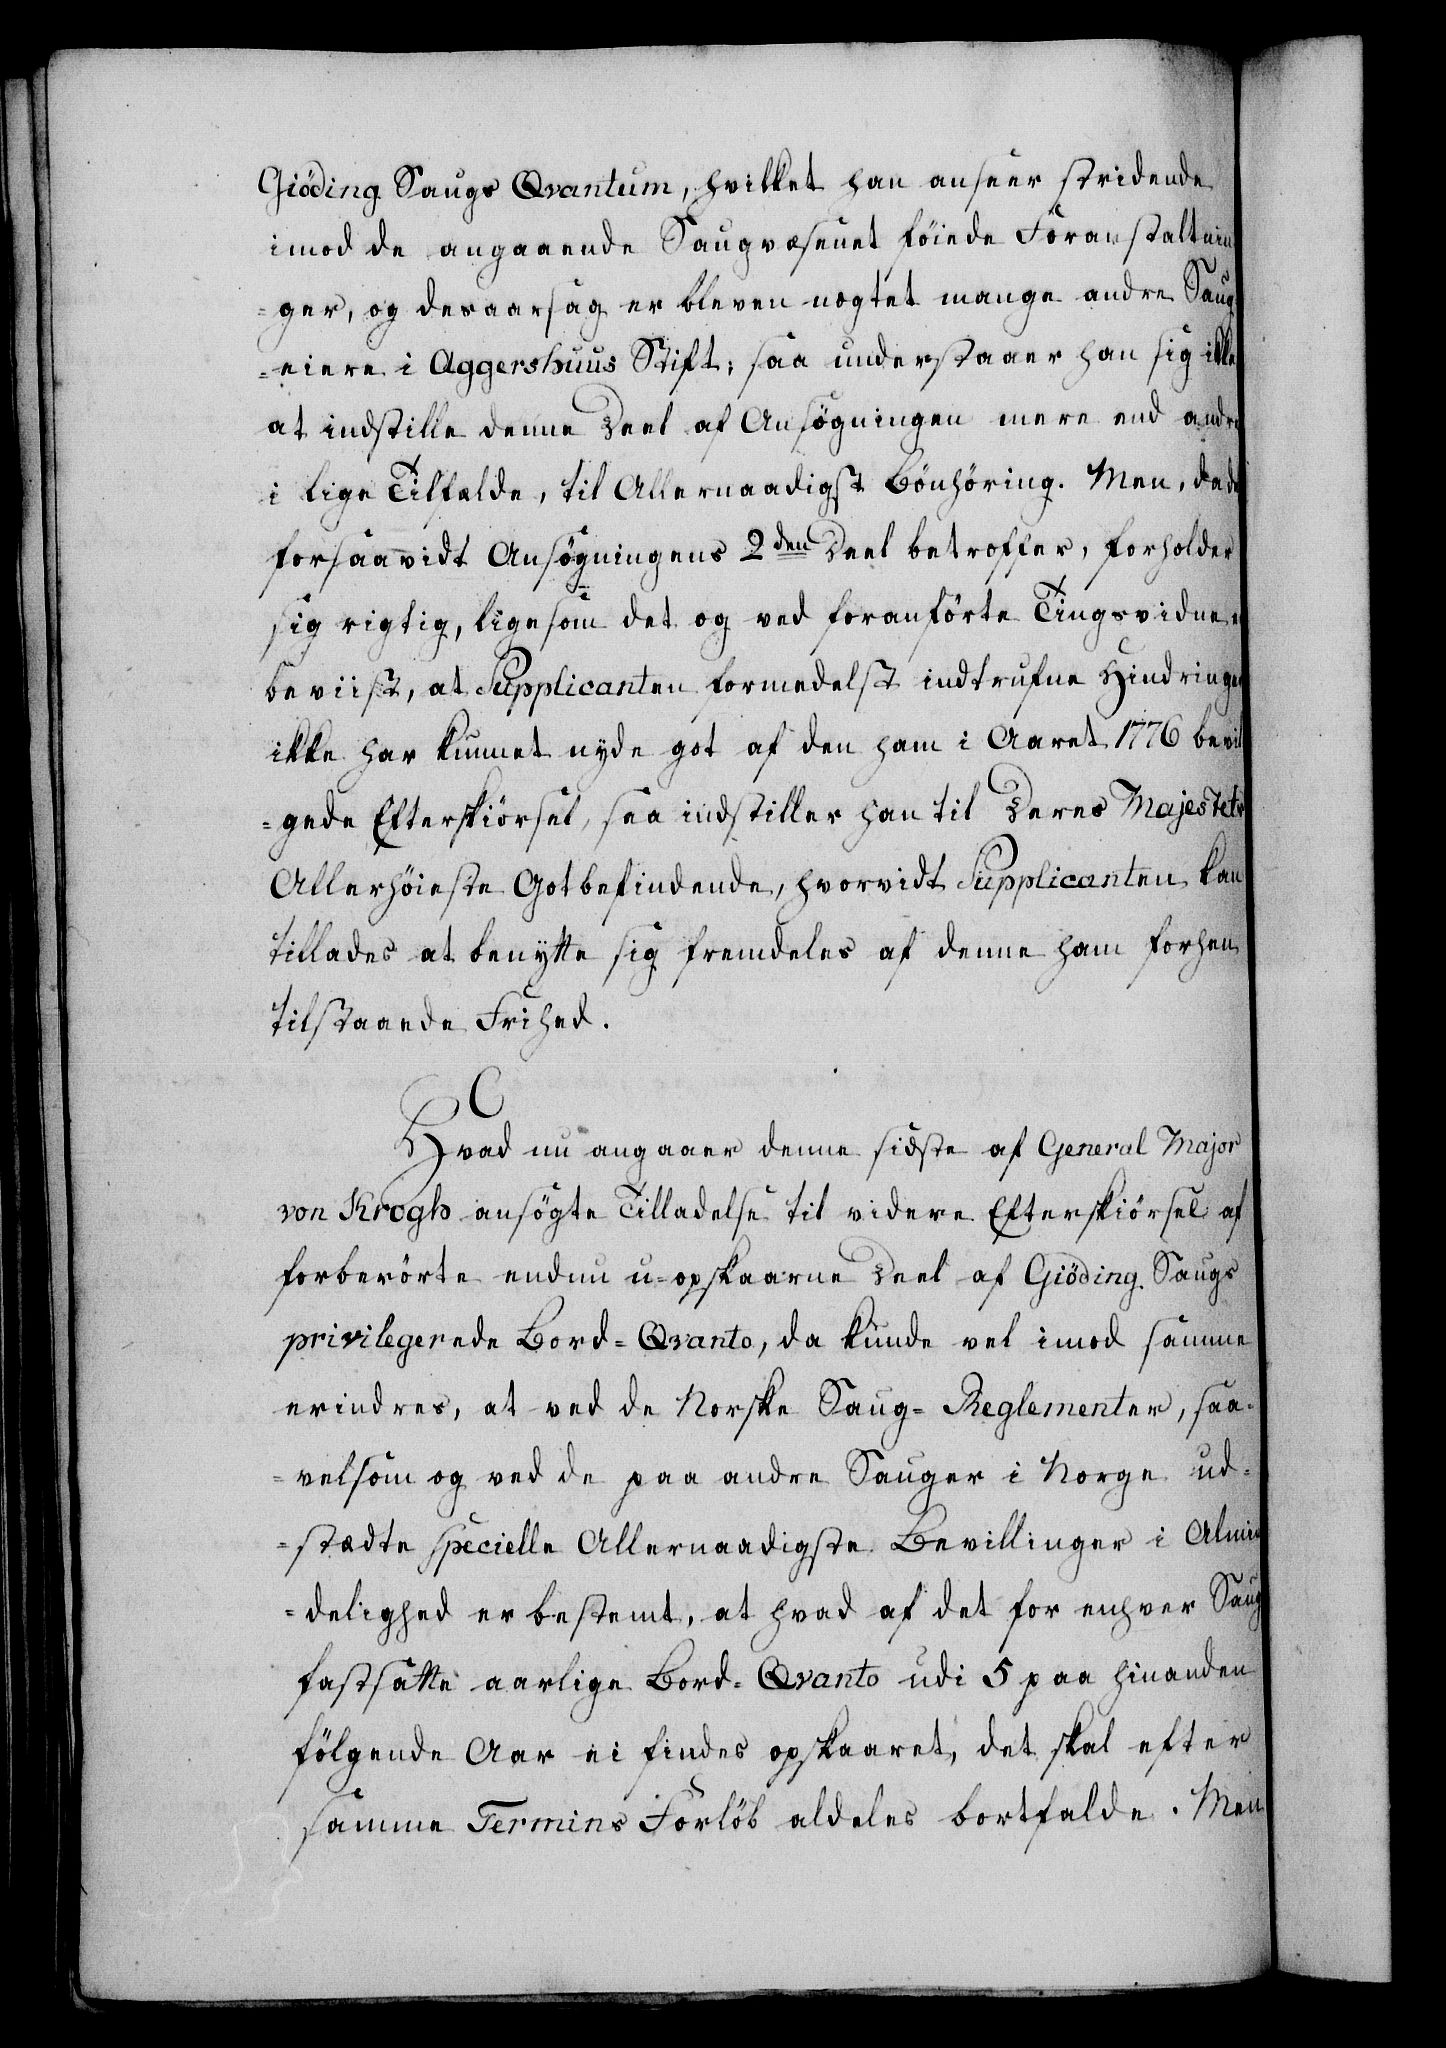 Giöding Saugs Qvantum, hvilket han anseer stridende
imod de angaaende Saugvæsenet föiede Foranstaltnin
=ger, og desaarsag er bleven nægtet mange andre Saug
=eiere i Aggershuus Stift; saa understaaer han sig ikke
at indstille denne Deel af Ansögningen mere end andre
i lige Tilfælde, til Allernaadigst Bönhöring. Men, da de
forsaavidt Ansögningens 2den Deel betræffer, forholder
sig rigtig, ligesom det og ved foranförte Tingsvidne er
beviist, at Supplicanten formedelst indtrufne Hindringer
ikke har kunnet nyde got af den ham i Aaret 1776 bevil
=gede Efterskiörsel, saa indstiller han til Deres Majestets
Allerhöieste Gotbefindende, hvorvidt Supplicanten kan
tillades at benytte sig fremdeles af denne ham forhen
tilstaaede Frihed.
Hvad nu angaaer denne sidste af General Major
von Krogh ansögte Tilladelse til videre Efterskiörsel af
forberörte endnu u=opskaarne Deel af Giöding Saugs
privilegerede Bord=Qvanto, da kunde vel imod samme
erindres, at ved de Norske Saug=Reglementer, saa=
=velsom og ved de paa andre Sauger i Norge ud=
=stædte specielle Allernaadigste Bevillinger i Almin
=delighed er bestemt, at hvad af det for enhver Saug
fastsatte aarlige Bord=Qvanto udi 5 paa hinanden
fölgende Aar ei findes opskaaret, det skal efter
samme Termins Forlöb aldeles bortfalde. Men